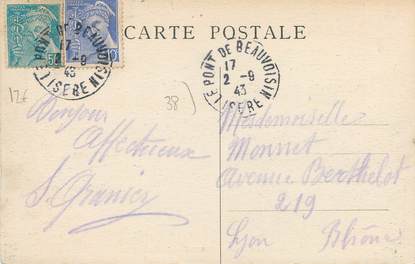 CARTE POSTALE
LE PONT DE BEAUVOISIN
17
2 -9
43
ISERE
LE PONT DE BEAUVOISIN
17
2 -9
43
ISERE
12€
38
Bonjour
Affectueux
S. Granier
Mademoiselle
Monnet
Avenue Berthelot
219
Lyon Rhône